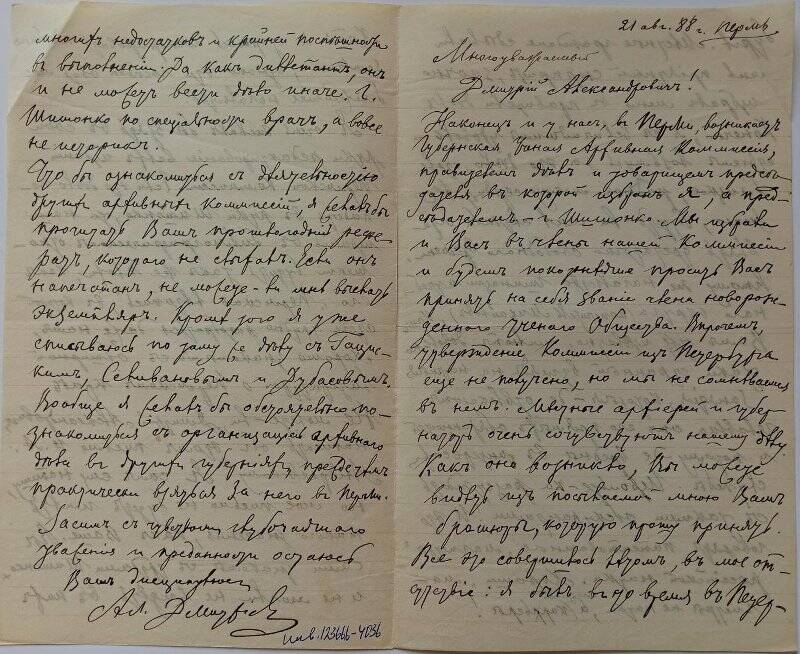 21 авг. 88 г. Пермь
Многоуважаемый
Дмитрій Александровичъ!
Наконецъ и у насъ, въ Перми, возникаетъ
Губернская Ученая Архивная Коммиссія,
правителемъ дѣлъ и товарищемъ предсѣ-
дателя въ которой избранъ я, а пред-
сѣдателемъ – г. Шишонко. Мы избрали
и Васъ въ члены нашей Коммиссіи
и будемъ покорнѣйше просить Васъ
принять на себя званіе члена новорож-
деннаго ученаго Общества. Впрочемъ,
утвержденіе Коммиссіи изъ Петербурга
еще не получено, но мы не сомнѣваемся
въ немъ. Мѣстные архіерей и губер-
наторъ очень сочувствуютъ нашему дѣлу.
Какъ оно возникло, Вы можете
видѣть изъ посылаемой мною Вамъ
брошюры, которую прошу принять.
Все это совершилось лѣтомъ, въ мое от-
сутствіе: я былъ въ это время въ Петер-
многихъ недостатковъ и крайней поспѣшности
въ выполненіи. Да какъ диллетантъ, онъ
и не можетъ вести дѣло иначе. Г.
Шишонко по спеціальности врачъ, а вовсе
не историкъ.
Что бы ознакомиться съ дѣятельностію
другихъ архивныхъ коммиссій, я желалъ бы
прочитать Вашъ прошлогодній рефе-
ратъ, котораго не слыхалъ. Если онъ
напечатанъ, не можете-ли мнѣ выслать
экземпляръ. Кромѣ того я уже
списываюсь по тому же дѣлу съ Гацис-
скимъ, Селивановымъ и Дубасовымъ.
Вообще я желалъ бы обстоятельно по-
знакомиться съ организаціей архивнаго
дѣла въ другихъ губерніяхъ, прежде чѣмъ
практически взяться за него въ Перми.
Засимъ съ чувствомъ глубочайшаго
уваженія и преданности остаюсь
Вашъ
Ал. Дмитріевъ
инв. 123666-4036